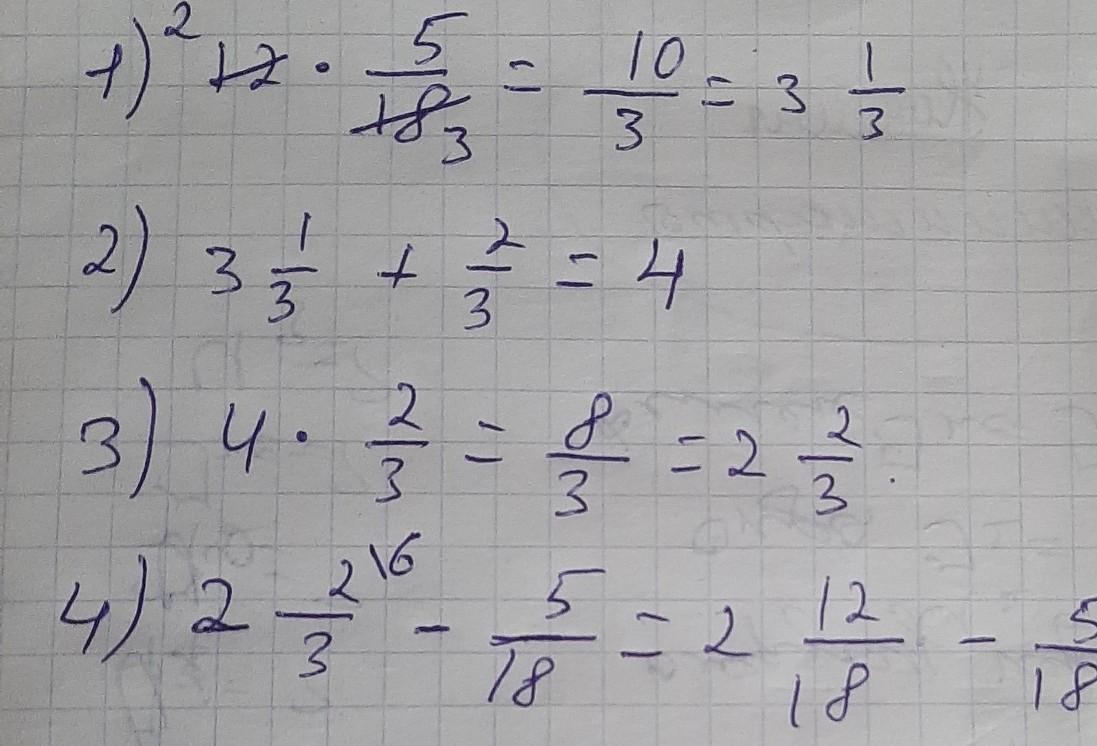 1) ²12 · 5/18 3 = 10/3 = 3 1/3
2) 3 1/3 + 2/3 = 4
3) 4 · 2/3 = 8/3 = 2 2/3.
4) 2 2\6/3 - 5/18 = 2 12/18 - 5/18